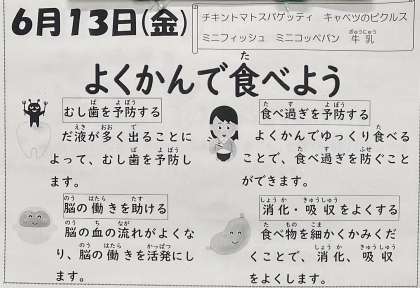 6月13日(金)
チキントマトスパゲッティ　キャベツのピクルス
ミニフィッシュ　ミニコッペパン　牛乳
よくかんで食べよう
むし歯を予防する
だ液が多く出ることに
よって、むし歯を予防し
ます。
食べ過ぎを予防する
よくかんでゆっくり食べる
ことで、食べ過ぎを防ぐこと
ができます。
脳の働きを助ける
脳の血の流れがよくな
り、脳の働きを活発にし
ます。
消化・吸収をよくする
食べ物を細かくかみくだ
くことで、消化、吸収
をよくします。